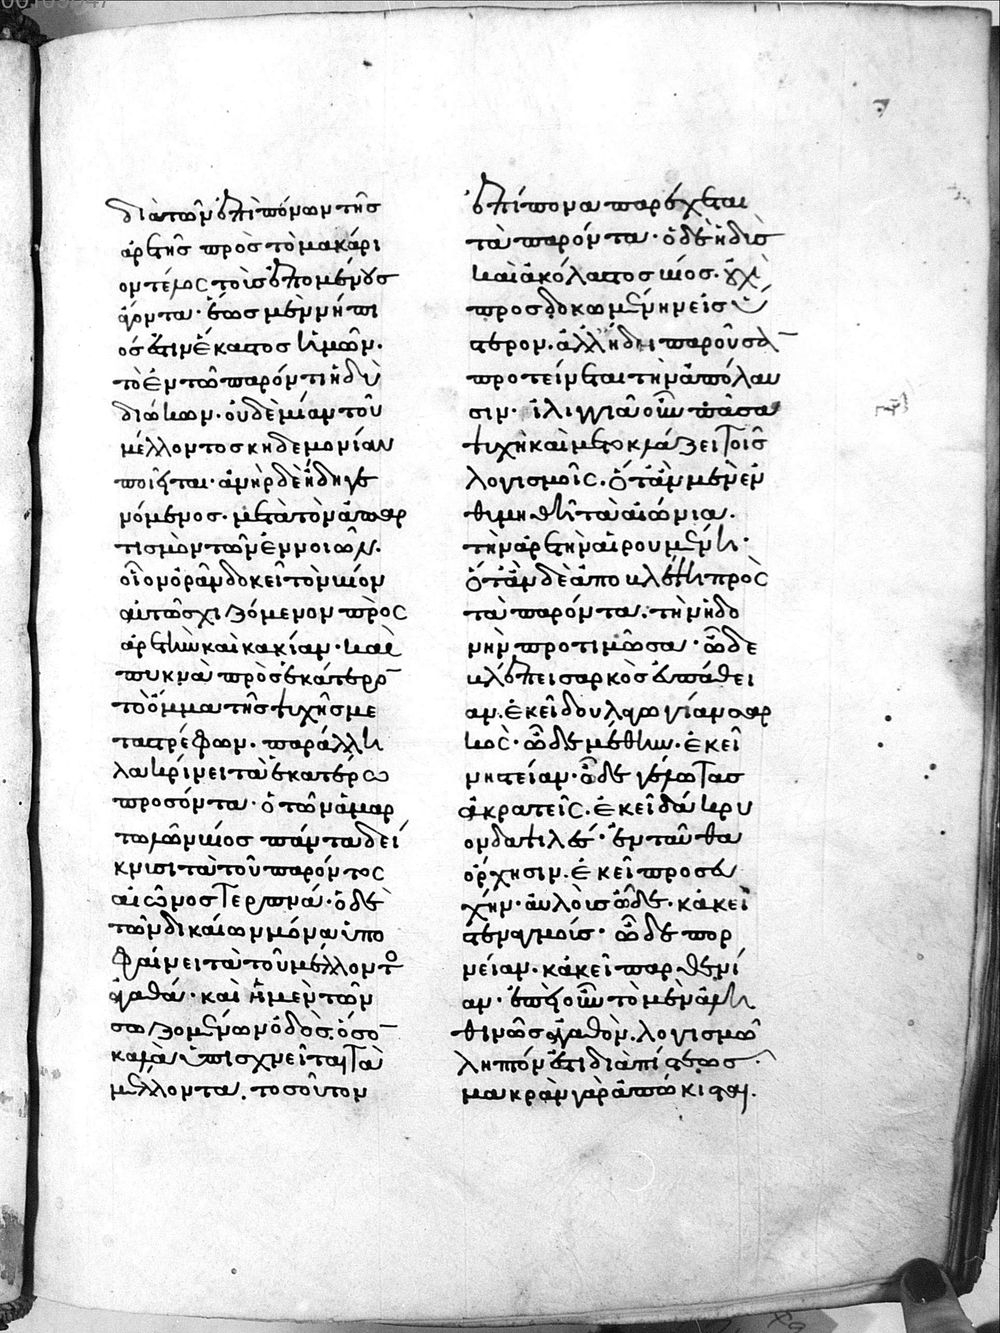 διὰ τῶν ἐπιπόνων τῆς
ἀρετῆς πρὸς τὸ μακάρι
ον τέλος τοῖς ἑπομένους
ἄγοντα· ἕως μὲν νήπι
ός ἐστιν ἕκαστος ἡμῶν·
τὸ ἐν τῶ παρόντι ἡδὺ
διώκων· οὐδεμίαν τοῦ
μέλλοντος κηδεμονίαν
ποιεῖται· ἀνὴρ δὲ ἤδη γε
νόμενος· μετὰ τὸν ἀπαρ
τισμὸν τῶν ἐννοιῶν·
οἷον ὁρᾶν δοκεῖ τὸν βίον
αὐτῶ σχιζόμενον πρὸς
ἀρετὴν καὶ κακίαν· καὶ
πυκνὰ πρὸς ἑκάτερον
τὸ ὄμμα τῆς ψυχῆς με
ταστρέφων· παράλλη
λα κρίνει τὰ ἑκατέρω
προσόντα· ὁ τῶν ἁμαρ
τωλῶν βίος πάντα δεί
κνυσι τὰ τοῦ παρόντος
αἰῶνος τερπνά· ὁ δὲ
τῶν δικαίων μόνα ὑπο
φαίνει τὰ τοῦ μέλλοντος
ἀγαθά· καὶ ἡ μὲν τῶν
σωζομένων ὁδὸς ὅσον
καλὰ ὑπισχνεῖται τὰ
μέλλοντα· τοσοῦτον
ἐπίπονα παρέχεται
τὰ παρόντα· ὁ δὲ ἡδὺς
καὶ ἀκόλαστος βίος· οὐχὶ
προσδοκωμένην εἰς ὕ
στερον· ἀλλ' ἤδη παροῦσαν
προτείνεται τὴν ἀπόλαυ
σιν· ἰλιγγιᾶ οὖν πᾶσα
ψυχὴ καὶ μετοκλάζει τοῖς
λογισμοῖς· ὅταν μὲν ἐν
θυμηθῆ τὰ αἰώνια·
τὴν ἀρετὴν αἱρουμένη·
ὅταν δὲ ἀποβλέψη πρὸς
τὰ παρόντα· τὴν ἡδο
νὴν προτιμῶσα· ὧδε
βλέπει σαρκὸς εὐπάθει
αν· ἐκεῖ δουλαγωγίαν σαρ
κὸς· ὧδε μέθην· ἐκεῖ
νηστείαν· ὧδε γέλωτας
ἀκρατεῖς· ἐκεῖ δάκρυ
ον δαψιλές· ἐνταῦθα
ὄρχησιν· ἐκεῖ προσευ
χήν· αὐλοὺς ὧδε· κἀκεῖ
στεναγμούς· ὧδε πορ
νείαν· κἀκεῖ παρθενί
αν· ἐπεὶ οὖν τὸ μὲν ἀλη
θινῶς ἀγαθὸν· λογισμῶ
ληπτόν ἐστι διὰ πίστεως·
μακρὰν γὰρ ἀπώκισται·